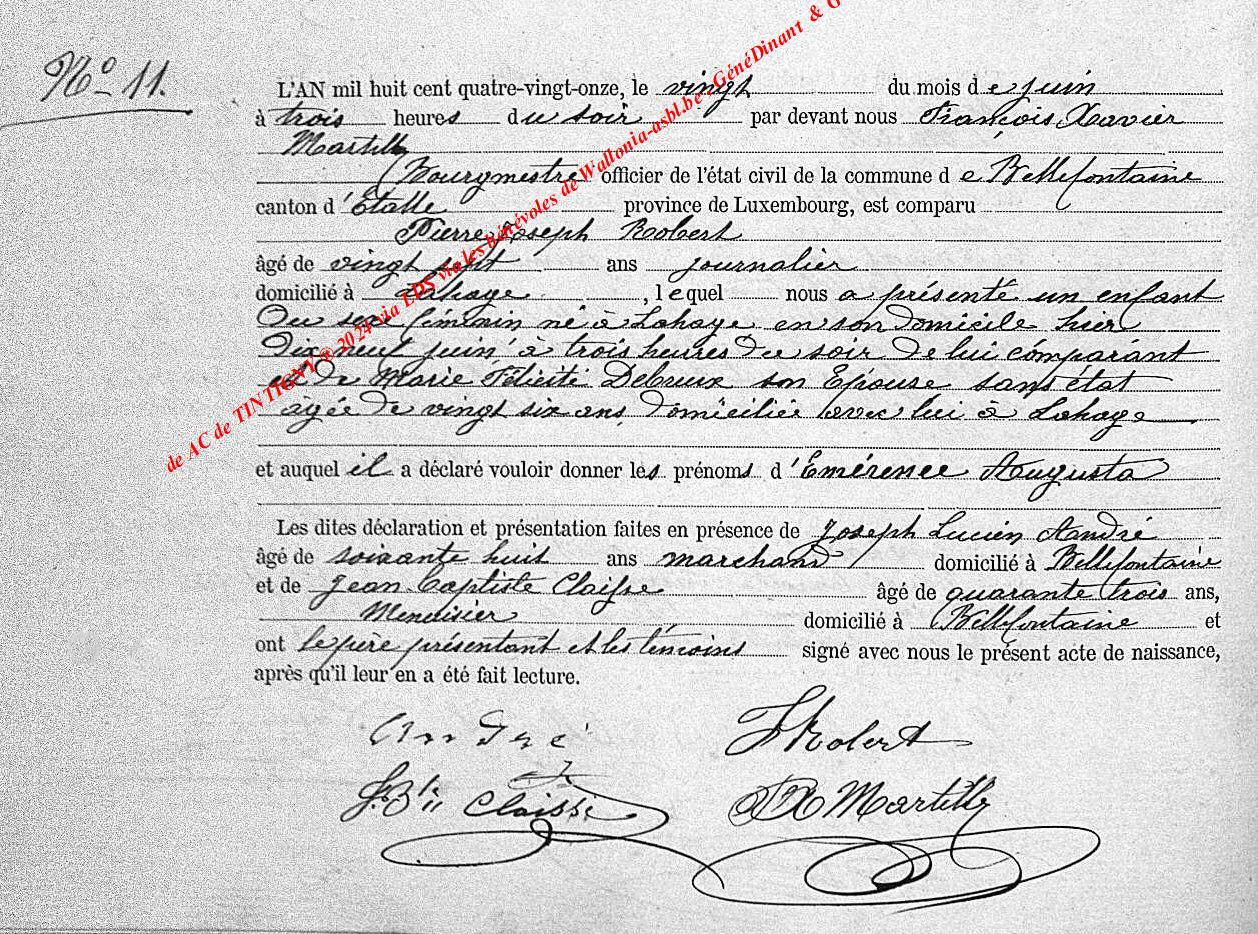 N° 11.
L'AN mil huit cent quatre-vingt-onze, le vingt du mois de juin
à trois heures du soir par devant nous François Xavier
Martilly
Bourgmestre officier de l'état civil de la commune de Bellefontaine
canton d'Étalle province de Luxembourg, est comparu
Pierre Joseph Robert
âgé de vingt sept ans journalier
domicilié à Lahage, lequel nous a présenté un enfant
Du sexe féminin né à Lahage en son Domicile hier
Dix neuf juin à trois heures du soir de lui comparant
et de Marie Félicité son Epouse sans état
âgée De vingt six ans Domiciliée avec lui à Lahage
et auquel il a déclaré vouloir donner les prénoms d'Emérence Augusta
Les dites déclaration et présentation faites en présence de Joseph Lucien André
âgé de soixante huit ans marchand domicilié à Bellefontaine
et de Jean-Baptiste Claisse âgé de quarante trois ans,
Menuisier domicilié à Bellefontaine et
ont le père présentant et les témoins signé avec nous le présent acte de naissance,
après qu'il leur en a été fait lecture.
André
Robert
J. Bte Claisse
FX Martilly
de AC de TINTIGNY ® 2024 via LDS via les bénévoles de Wallonia-asbl.be - GénéDinant & G